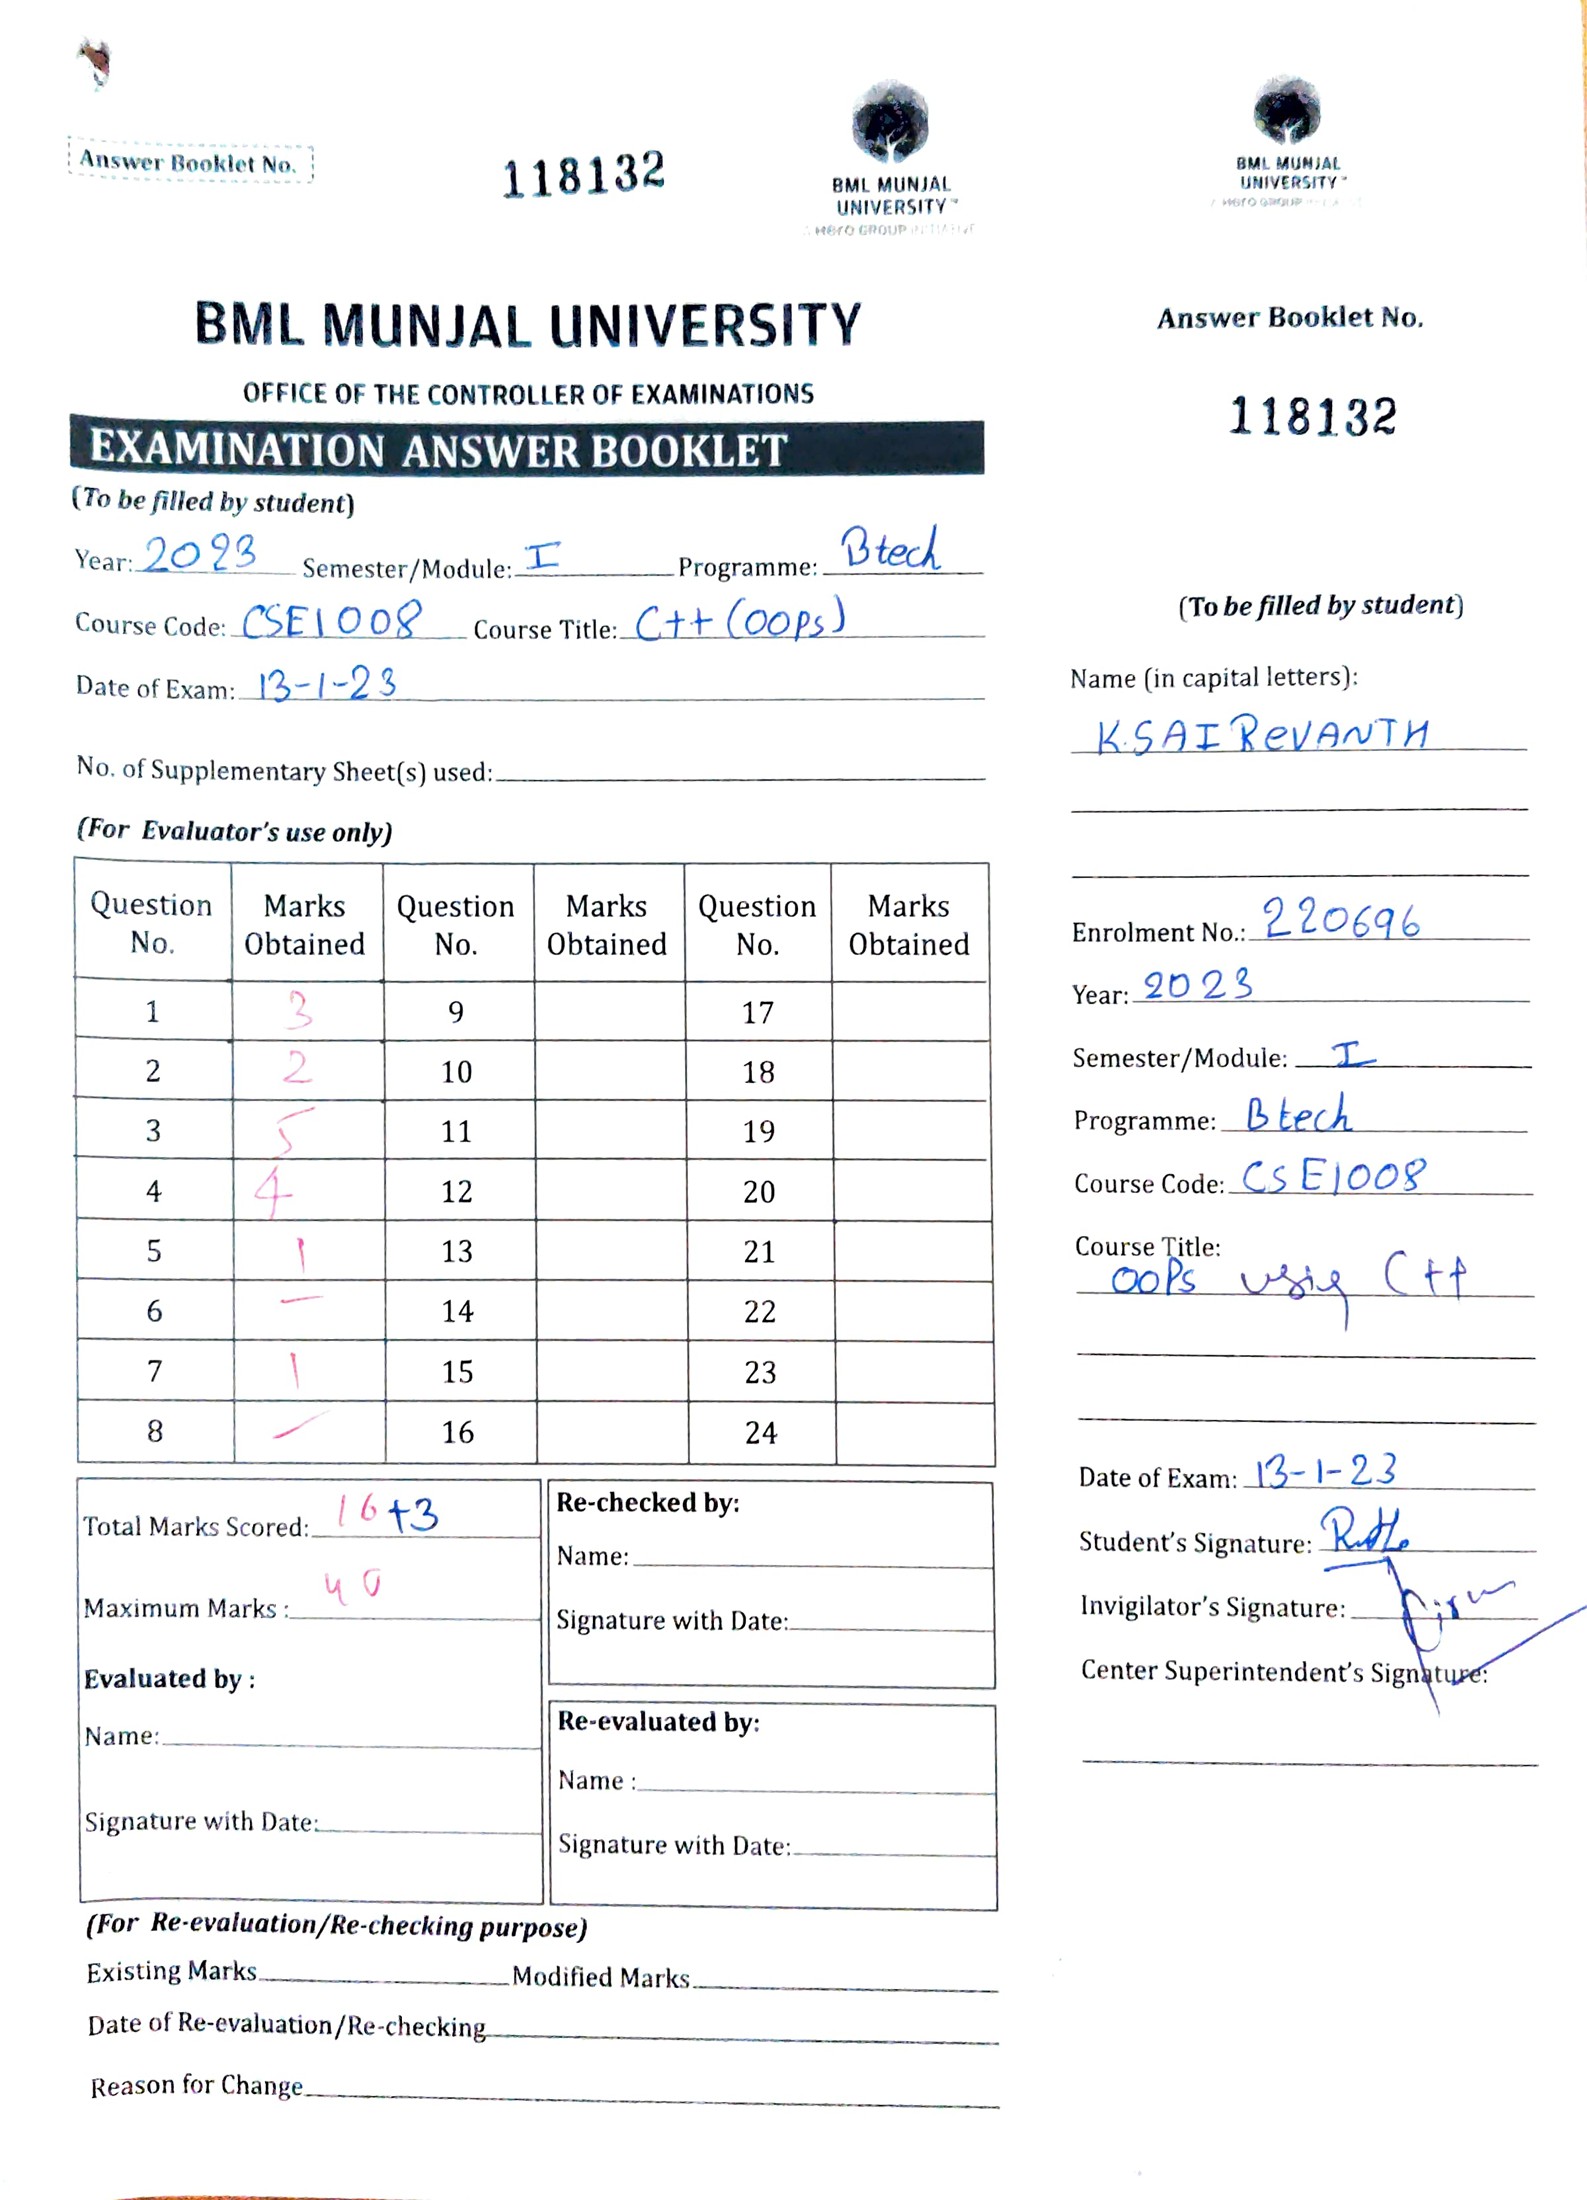 Answer Booklet No.
118132
BML MUNJAL
UNIVERSITY™
A Hero GROUP INITIATIVE
BML MUNJAL UNIVERSITY
OFFICE OF THE CONTROLLER OF EXAMINATIONS
EXAMINATION ANSWER BOOKLET
(To be filled by student)
Year: 2023 Semester/Module: I Programme: Btech
Course Code: CSE1008 Course Title: C++ (OOPs)
Date of Exam: 13-1-23
No. of Supplementary Sheet(s) used:
(For Evaluator's use only)
Question No. Marks Obtained Question No. Marks Obtained Question No. Marks Obtained
1 3 9 17
2 2 10 18
3 5 11 19
4 4 12 20
5 1 13 21
6 — 14 22
7 1 15 23
8 — 16 24
Total Marks Scored: 16 +3
Maximum Marks : 40
Evaluated by :
Name:
Signature with Date:
Re-checked by:
Name:
Signature with Date:
Re-evaluated by:
Name :
Signature with Date:
(For Re-evaluation/Re-checking purpose)
Existing Marks Modified Marks
Date of Re-evaluation/Re-checking
Reason for Change
BML MUNJAL
UNIVERSITY™
Hero GROUP
Answer Booklet No.
118132
(To be filled by student)
Name (in capital letters):
K.SAI ReVANTH
Enrolment No.: 220696
Year: 2023
Semester/Module: I
Programme: Btech
Course Code: CSE1008
Course Title:
OOPs using C++
Date of Exam: 13-1-23
Student's Signature:
Invigilator's Signature:
Center Superintendent's Signature: